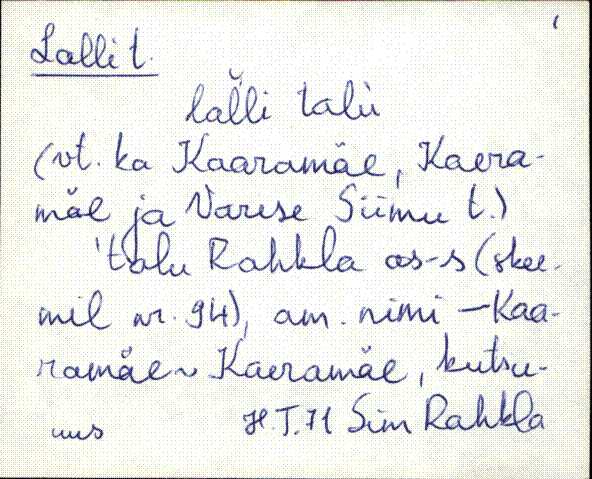 Lalli t.
lalli talu
(vt. ka Kaaramäe, Kaera-
mäe ja Varese Siimu t.)
talu Rahkla as-s (skee-
mil nr. 94), am. nimi – Kaa-
ramäe ~ Kaeramäe, kutsu-
mus H.T. 71 Sim Rahkla